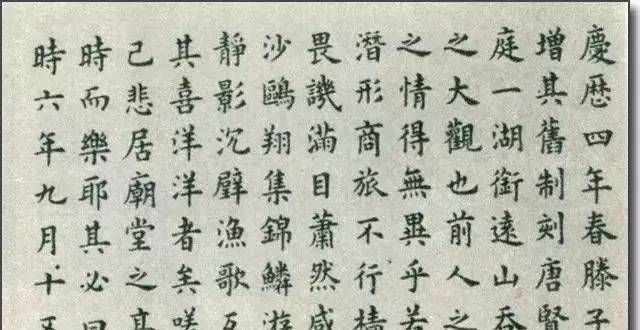 慶歷四年春滕子
增其舊制刻唐賢
庭一湖銜遠山吞
之大觀也前人之
之情得無異乎若
潛形商旅不行檣
畏譏滿目蕭然感
沙鷗翔集錦鱗游
靜影沉璧漁歌互
其喜洋洋者矣嗟
己悲居廟堂之高
時而樂耶其必曰
時六年九月十五